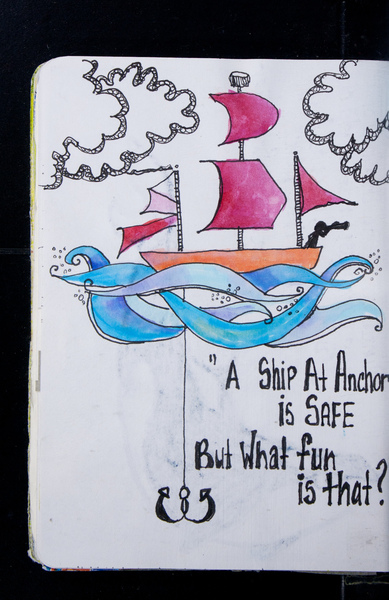 " A Ship At Anchor
is SAFE
But What fun
is that?